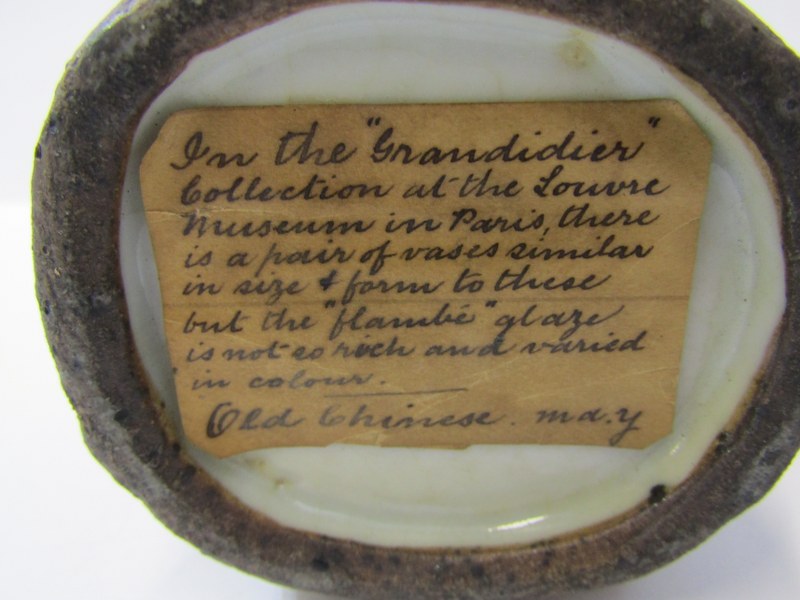 In the "Grandidier"
Collection at the Louvre
Museum in Paris, there
is a pair of vases similar
in size & form to these
but the "flambé" glaze
is not so rich and varied
in colour.
Old Chinese. m d. y